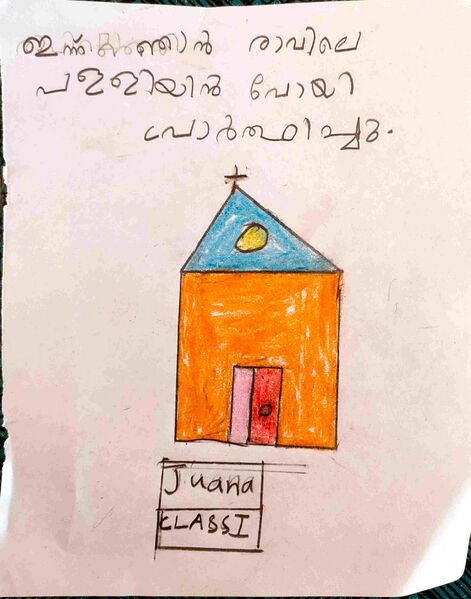 ഇന്ന് ഞാൻ രാവിലെ
പള്ളിയിൻ പോയി
പ്രാർത്ഥിച്ചു.
Juana
CLASS I